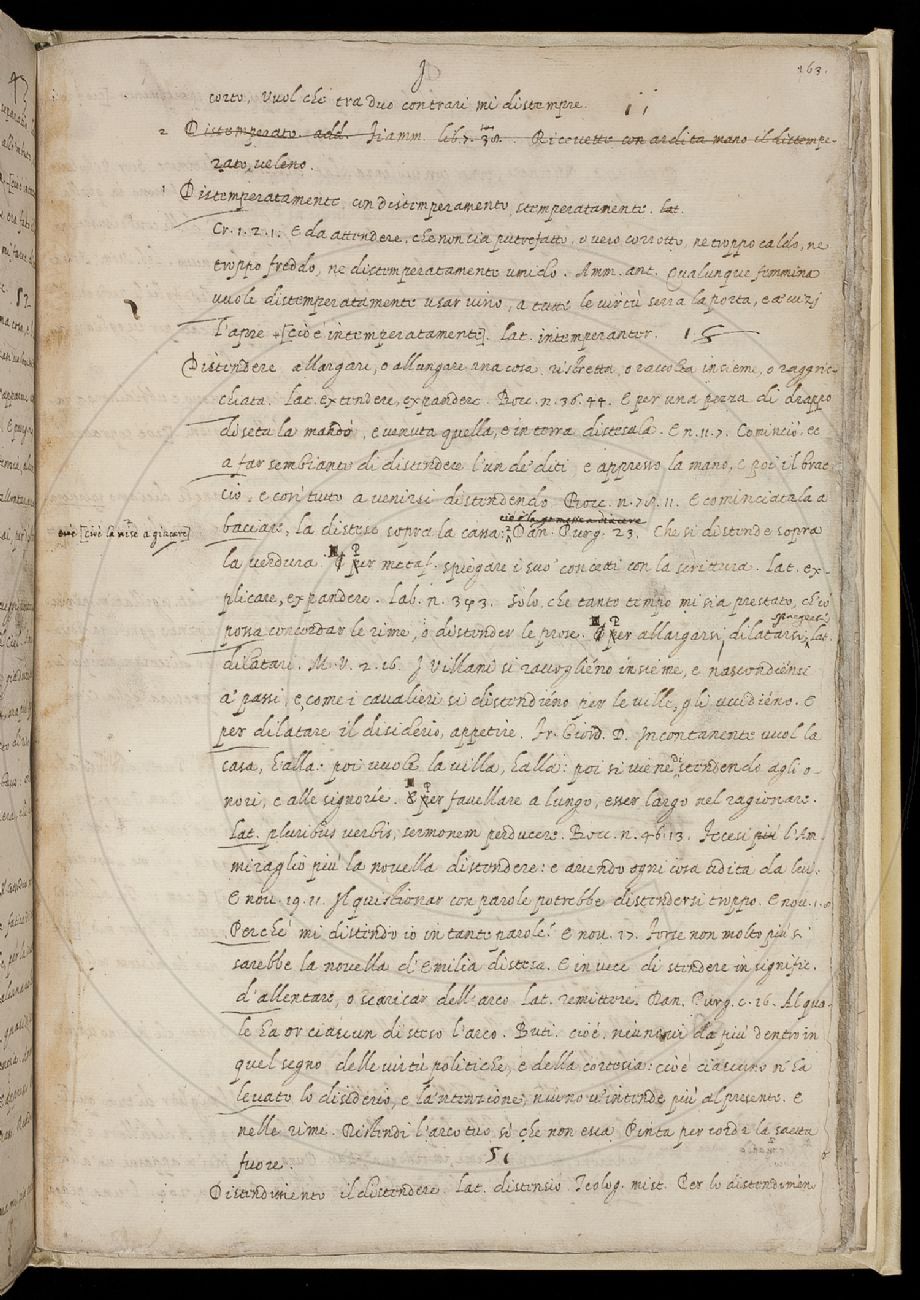 163.
corto, Vuol che tra duo contrari mi distempre.
2 Distemperato. add. Fiamm. lib. 7. 38. Ricevette con ardita mano il distempe-
rato, veleno.
1 Distemperatamente, con distemperamento, stemperatamente. lat.
Cr. 1. 2. 1. E da attendere, che non sia putrefatto, o vero corrotto, ne troppo caldo, ne
troppo freddo, ne distemperatamente umido. Amm. ant. Qualunque femmina
vuole distemperatamente usar vino, a tutte le virtù serra la porta, e a' vizj
l'apre [cioè intemperatamente]. lat. intemperanter. 15
Distendere allargare, o allungare una cosa ristretta, o raccolta insieme, o raggric-
chiata. lat. extendere, expandere. Bocc. n. 36. 44. E per una pezza di drappo
di seta la mandò, e venuta quella, e in terra distesala. E n. 11. 7. Cominciò ec
a far sembiante di distendere l'un de' diti e appresso la mano, e poi il brac-
cio, e così tutto a venirsi distendendo Bocc. n. 79. 11. E cominciatala a
cioè la messe a giacere
[cioè la mise a giacere]
baciare, la distese sopra la cassa. Dan. Purg. 23. Che si distende sopra
la verdura. ¶ per metaf. spiegare i suo' concetti con la scrittura. Lat. ex-
plicare, expandere. Lab. n. 343. Solo, che tanto tempo mi sia prestato, ch'io
possa concordar le rime, o distender le prose. ¶ per allargarsi, dilatarsi, lat.
dilatari. M. V. 2. 16. I Villani si raccogliéno insieme, e nascondiensi
a' passi, e come i cavalieri si distendiéno per le ville, gli uccidiéno. E
per dilatare il disiderio, appetire. Fr. Giord. D. Incontanente vuol la
casa, halla: poi vuole la villa, halla: poi si viene stendendo agli o-
nori, e alle signorie. per favellare a lungo, esser largo nel ragionare.
Lat. pluribus verbis, sermonem perducere. Bocc. n. 46. 13. Fecesi più l'Am
miraglio più la novella distendere: e avendo ogni cosa udita da lui.
E nov. 19. 11. Il quistionar con parole potrebbe distendersi troppo. E nov. 1. 8
Perchè mi distendo io in tante parole? E nov. 17. Forse non molto più si
sarebbe la novella d'Emilia distesa. E in vece di stendere in signific.
d'allentare, o scaricar dell'arco Lat. remittere. Dan. Purg. c. 16. Al qua-
le ha or ciascun disteso l'arco. Buti. cioè, niuno vi da più dentro in
quel segno delle virtù politiche, e della cortesia: cioè ciascuno n'ha
levato lo disiderio, e la 'ntenzione, niuno v'intende più al presente. E
nelle rime. Distendi l'arco tuo, sì che non esca Pinta per corda la saetta
fuore. 51
1 Distendimento il distendere. Lat. distensio Teolog. mist. Per lo distendimen